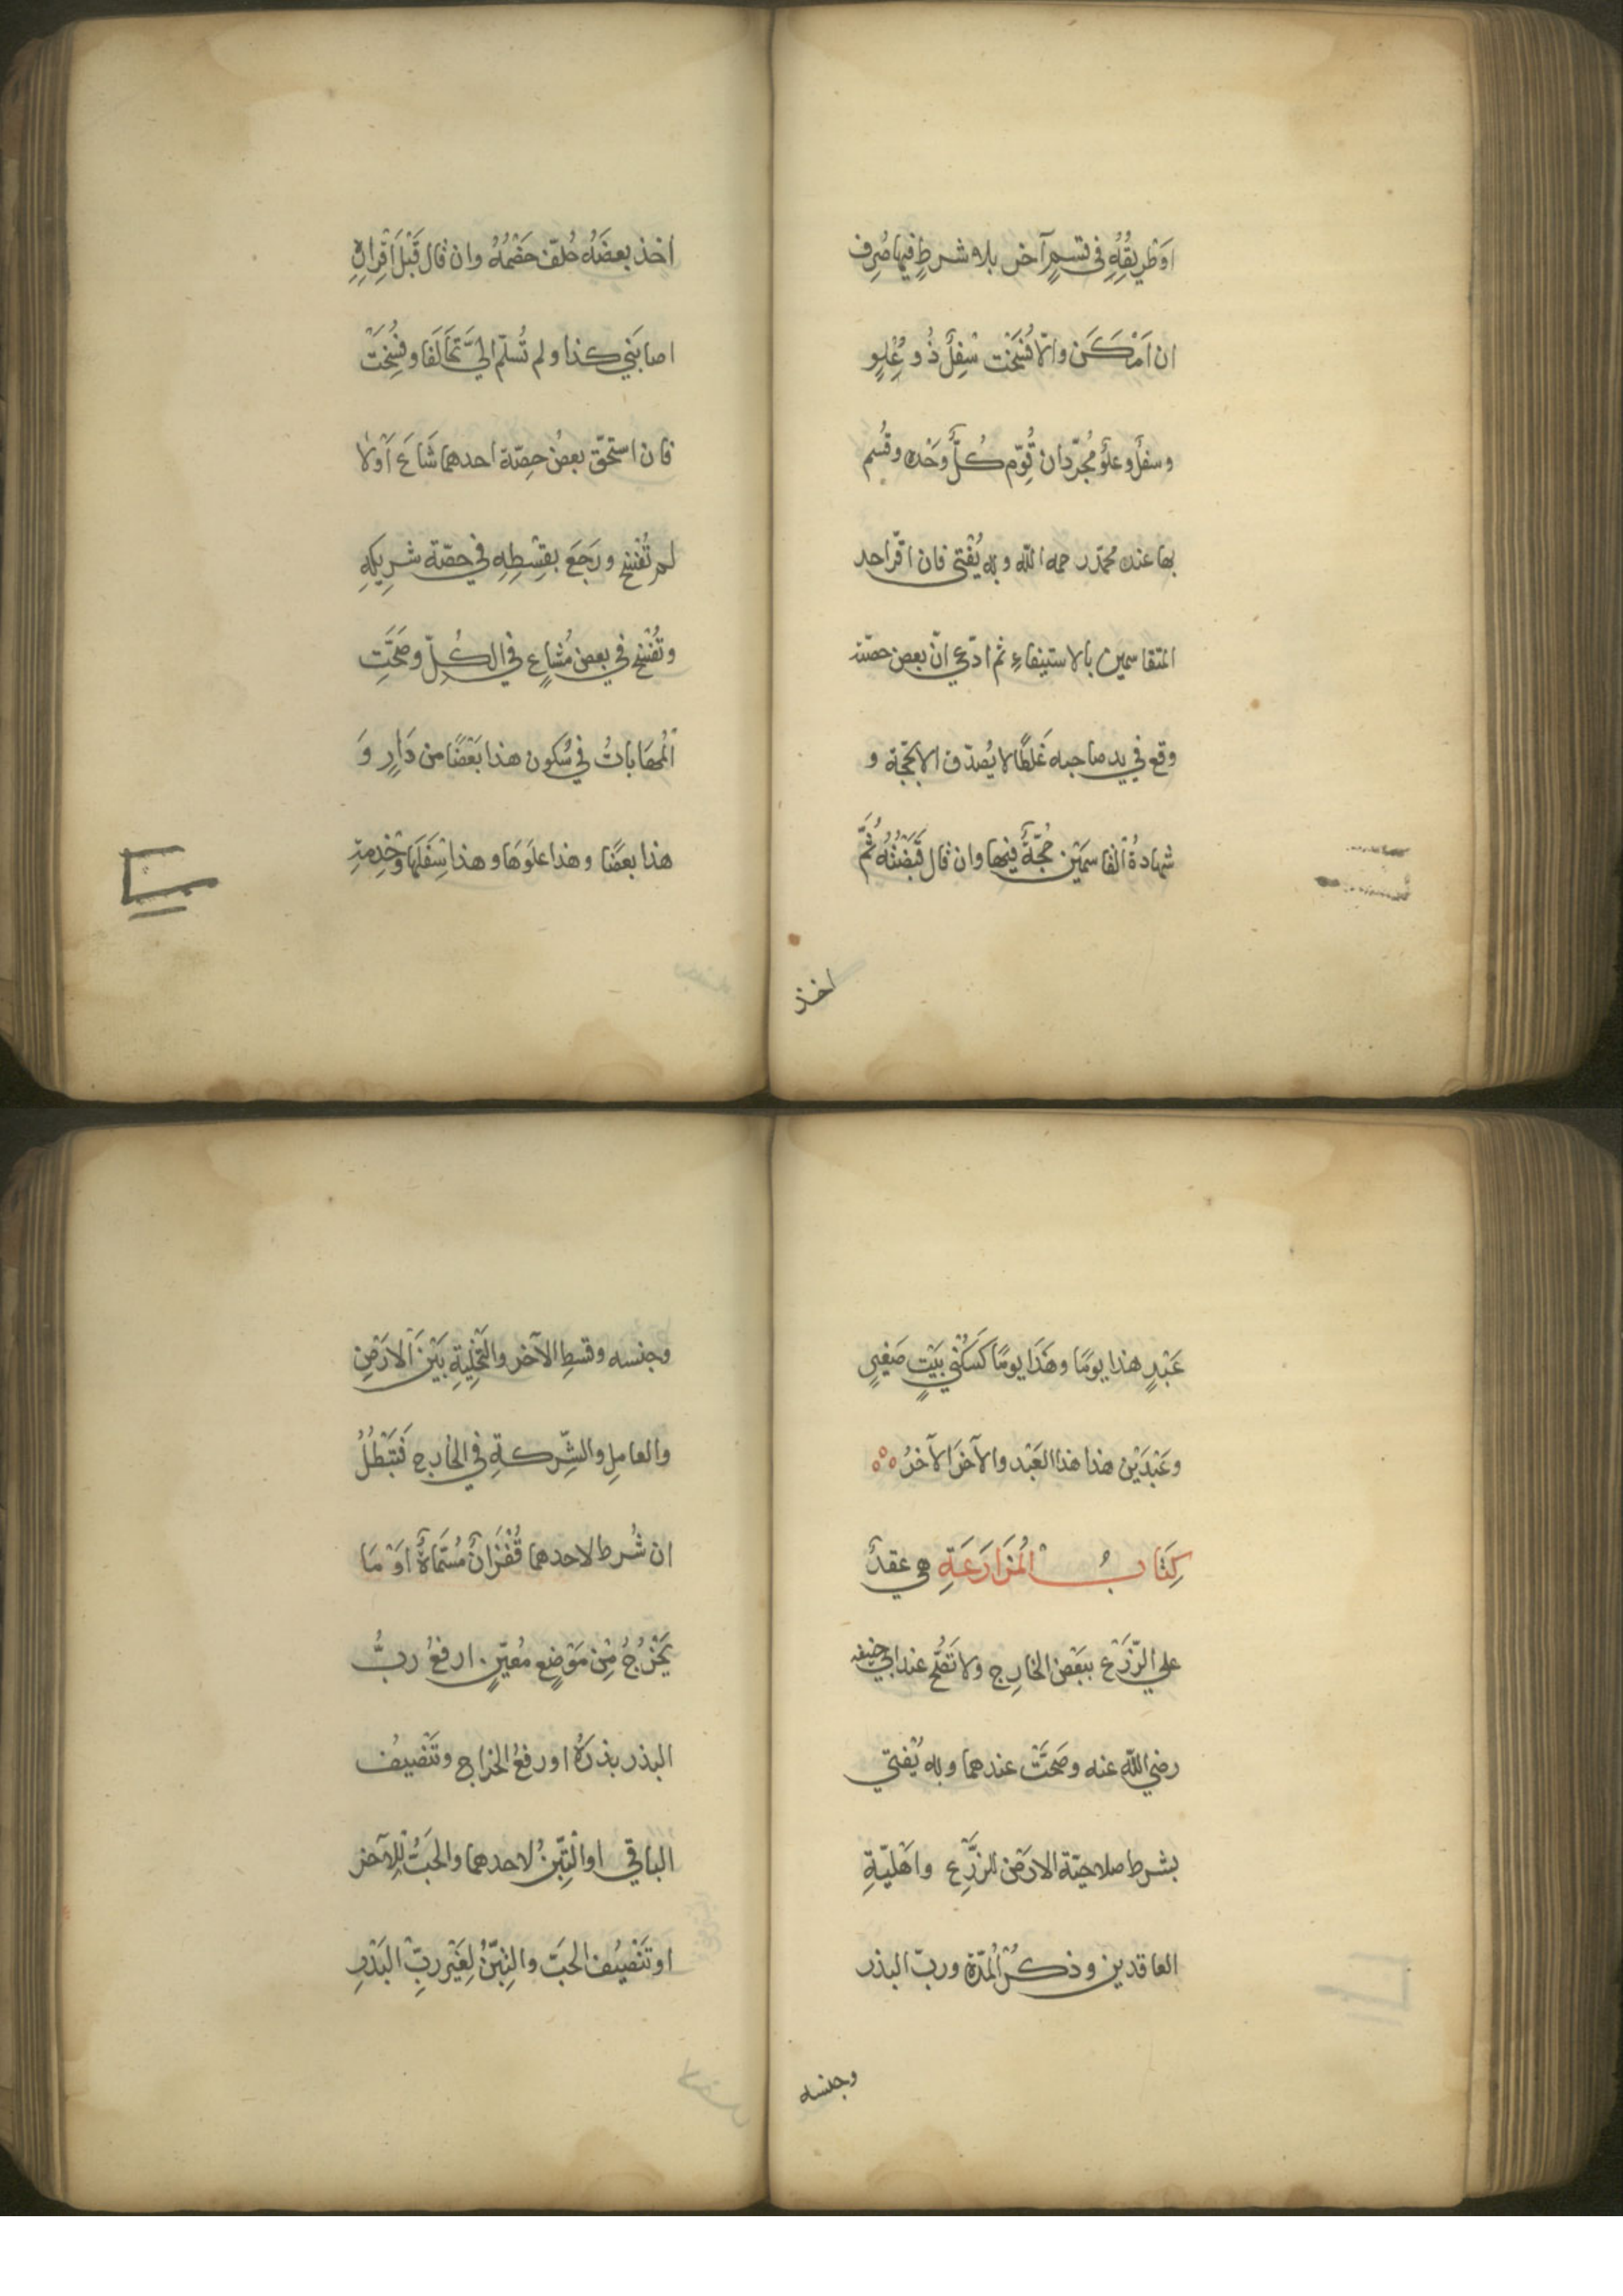 اَوْطَرِيقُهُ فى قسمٍ آخر بلا شرطٍ فيها صُرِف
ان اَمْكَنَ والّا فُسِخَت سُفِلٌ ذُو عُلِوٍ
وسفلٌ وعلوٌ مُجرّدان قُوِّم كُلٌّ وَحْدَه وقُسِم
بها عند محمّد رحمه الله وبه يُفْتى فان اقرّ احد
المتقاسمين بالاستيفاءِ ثم ادّعى انّ بعض حصّته
وقع في يد صاحبه غَلطًا لا يُصدّق الا بحُجّة و
شهادةُ القاسمَيْن حُجّةٌ فيها وان قال قَبَضْتُهُ ثُمَّ
اخذ
اَخذ بعضَهُ حُلّف خَصْمُهُ وان قال قَبْلَ اِقْرارِهِ
اصابَنِي كذا ولم تُسلّم اليَّ تَحالَفا وفُسِخَتْ
فان استُحقّ بعضُ حِصّة احدهما شَاعَ اَوْلا
لم تُفْسَخ ورَجَعَ بقِسْطِهِ في حصّة شَرِيكِهِ
وتُفْسَخ في بعض مُشاعٍ في الكُلِّ وصَحَّتِ
الْمُهَاياتُ في سُكون هذا بَعْضًا من دَارٍ وَ
هذا بعضًا وهذا علوَها وهذا سِفْلَها وخِدمةِ
عَبْدٍ هذا يومًا وهَذَا يومًا كَسُكْنَي بَيْتٍ صَغِيرٍ
وعَبْدَيْن هذا هذا العَبْد والآخَر الآخَرُ
كِتَابُ الْمُزَارَعَةِ هي عقدٌ
علي الزَّرْع ببَعْض الخارِج ولا تَصُحُّ عند ابي حنيفه
رضي اللّه عنه وصَحَّتْ عندهما وبه يُفتي
بشرط صلاحيّة الارْض للزَّرْعِ واَهْليّةِ
العاقدين وذكرُ الْمُدّة وربّ البذر
وجنسه
وجنسه وقسطِ الآخر والتَّخْلِيَةِ بَيْنَ الْاَرْضِ
والعامِل والشِّركةِ في الخارج فَتَبْطُلُ
ان شُرط لاحدهما قُفْزَانٌ مُسَمّاةٌ اَوْ مَا
يَخْرُجُ مِنْ مَوْضِعٍ مُعَيّنٍ اَو رفعُ ربُّ
البذر بذرَهُ او رفعُ الخراج وتَنْصيفُ
الباقي او التِّبْنُ لاحدهما والحَبُّ لِلآخر
او تَنْصيْفُ الحَبّ والتِّبْنُ لِغَيْر ربِّ البَذْرِ